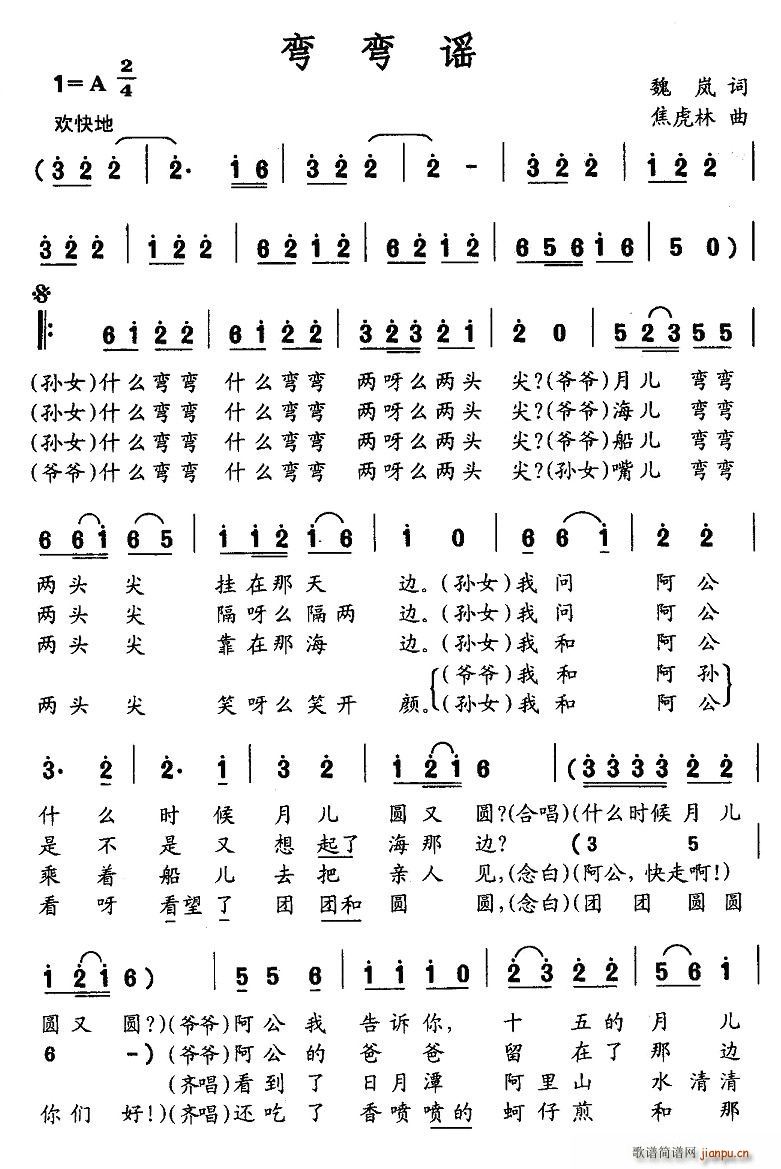 弯弯谣
1=A 2/4
魏岚 词
欢快地
焦虎林 曲
(3 2 2 | 2· 1 6 | 3 2 2 | 2 - | 3 2 2 | 1 2 2 |
3 2 2 | 1 2 2 | 6 2 1 2 | 6 2 1 2 | 6 5 6 1 6 | 5 0 )
‖: 6 1 2 2 | 6 1 2 2 | 3 2 3 2 1 | 2 0 | 5 2 3 5 5 |
(孙女)什么弯弯 什么弯弯 两呀么两头 尖?(爷爷)月儿 弯弯
(孙女)什么弯弯 什么弯弯 两呀么两头 尖?(爷爷)海儿 弯弯
(孙女)什么弯弯 什么弯弯 两呀么两头 尖?(爷爷)船儿 弯弯
(爷爷)什么弯弯 什么弯弯 两呀么两头 尖?(孙女)嘴儿 弯弯
6 6 1 6 5 | 1 1 2 1 6 | 1 0 | 6 6 1 | 2 2 |
两头尖 挂在那天 边。(孙女)我问 阿公
两头尖 隔呀么隔两 边。(孙女)我问 阿公
两头尖 靠在那海 边。(孙女)我和 阿公
(爷爷)我和 阿孙
两头尖 笑呀么笑开 颜。(孙女)我和 阿公
3· 2 | 2· 1 | 3 2 | 1 2 1 6 | (3 3 3 3 2 2 |
什么时候月儿 圆又圆?(合唱)(什么时候月儿
是不是又想起了海那边? (3 5
乘着船儿去把亲人见,(念白)(阿公,快走啊!)
看呀看望了团团和圆圆,(念白)(团团圆圆
1 2 1 6 ) | 5 5 6 | 1 1 1 0 | 2 3 2 2 | 5 6 1 |
圆又圆?)(爷爷)阿公我 告诉你, 十五的月儿
6 -) (爷爷)阿公的 爸爸 留在了那边
(齐唱)看到了 日月潭 阿里山 水清清
你们好!)(齐唱)还吃了 香喷喷的 蚵仔煎 和那
歌谱简谱网
jianpu.cn